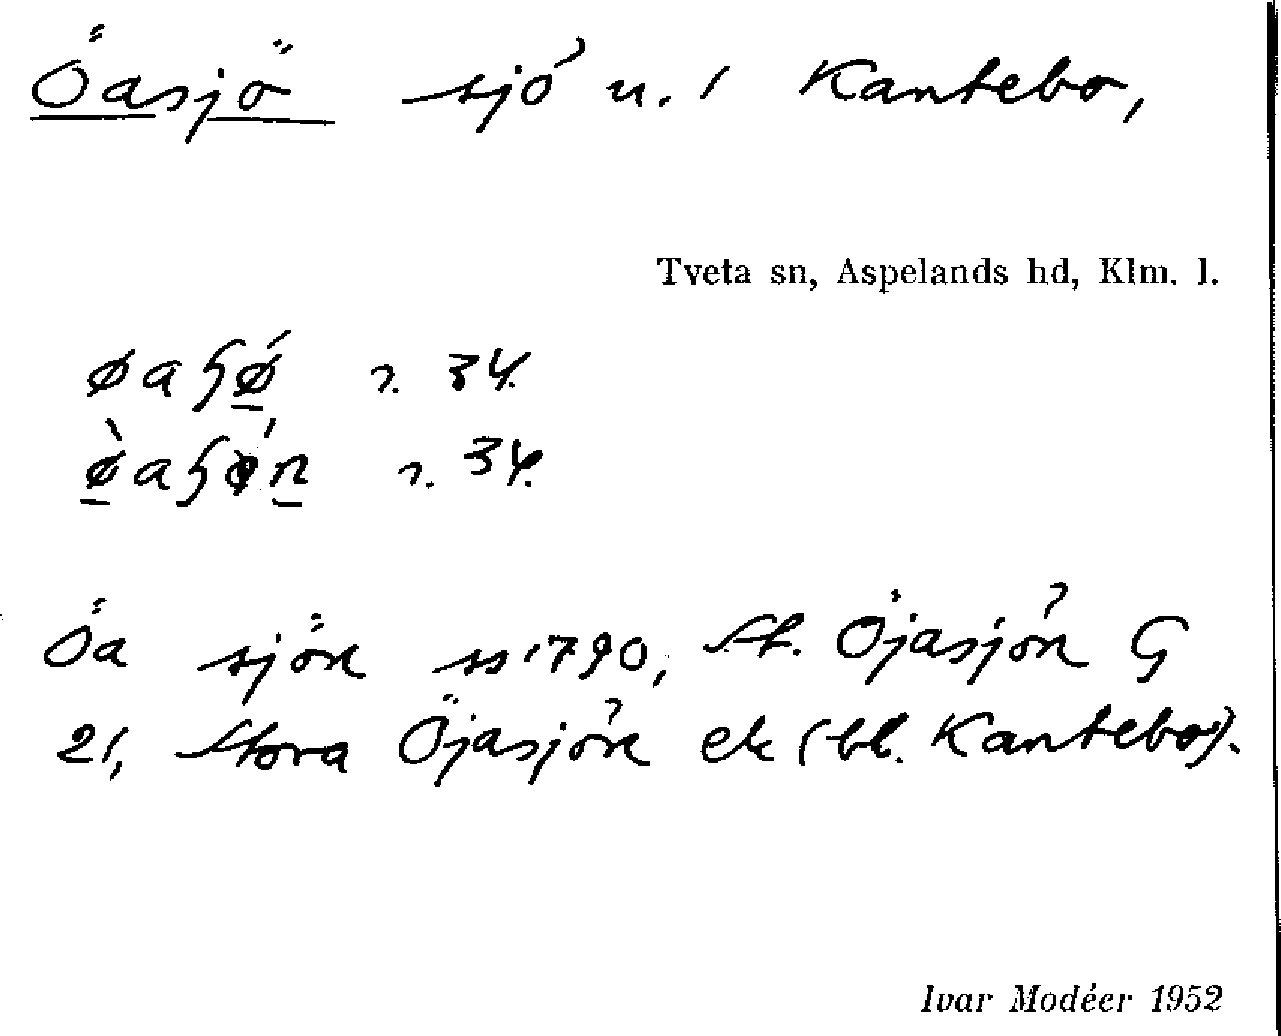 Öasjö sjö n. i Kantebo,
Tveta sn, Aspelands hd, Klm. l.
øaɧǿ r. 34.
ø̀aɧǿn r. 34.
Öa sjön ss 1790, St. Öjasjön G
21, Stora Öjasjön ek (bl. Kantebo).
Ivar Modéer 1952